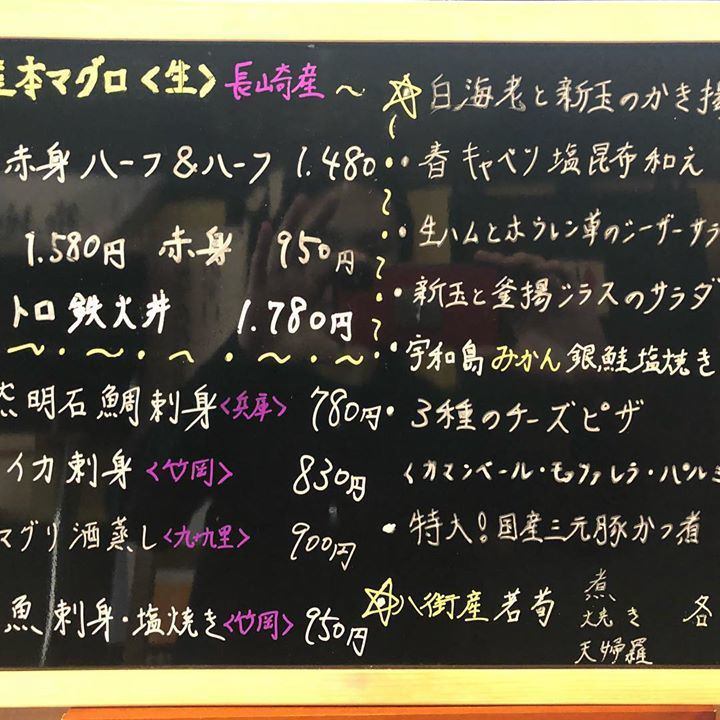 本マグロ〈生〉長崎産 〜
赤身ハーフ&ハーフ 1.480
1.580円 赤身 950円
トロ鉄火丼 1.780円
明石鯛刺身〈兵庫〉 780円
イカ刺身〈竹岡〉 830円
マグリ酒蒸し〈九十九里〉 900円
魚刺身・塩焼き〈竹岡〉 950円
☆白海老と新玉のかき揚
・春キャベツ塩昆布和え
・生ハムとホウレン草のシーザーサラ
・新玉と釜揚シラスのサラダ
・宇和島みかん銀鮭塩焼き
・3種のチーズピザ
〈カマンベール・モッツァレラ・パルミ
・特大!国産三元豚かつ煮
☆八街産若筍 煮 焼き 天婦羅 各